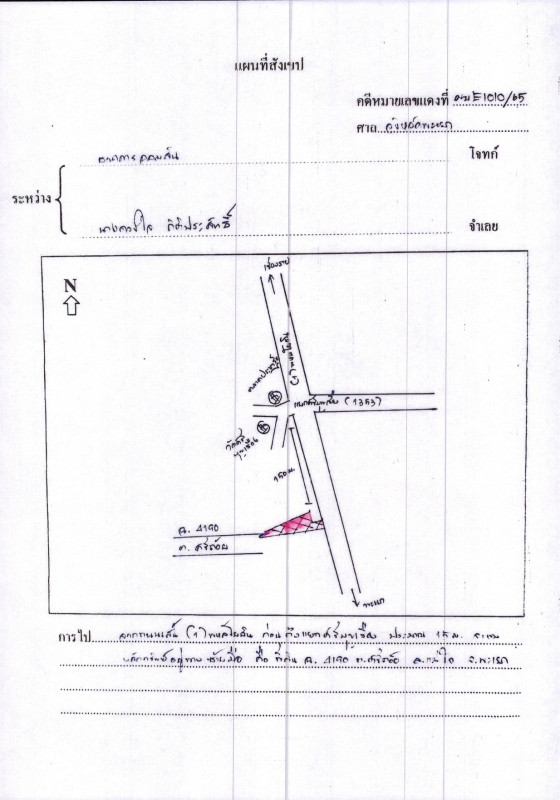 แผนที่สังเขป
คดีหมายเลขแดงที่ ผบE1010/65
ศาล จังหวัดพะเยา
ธนาคารออมสิน โจทก์
ระหว่าง
นางดวงใจ กิติประสิทธิ์ จำเลย
N
เชียงราย
(1) พหลโยธิน
แยกศรีบุญเรือง (1353)
วัดศรีบุญเรือง
150 ม.
ฉ. 4190
ต. ศรีถ้อย
พะเยา
การไป จากถนนเส้น (1) พหลโยธิน ก่อนถึงแยกศรีบุญเรือง ประมาณ 15 ม. จะพบ
หลักทรัพย์อยู่ทางซ้ายมือ คือ ที่ดิน ฉ. 4190 ต.ศรีถ้อย อ.แม่ใจ จ.พะเยา